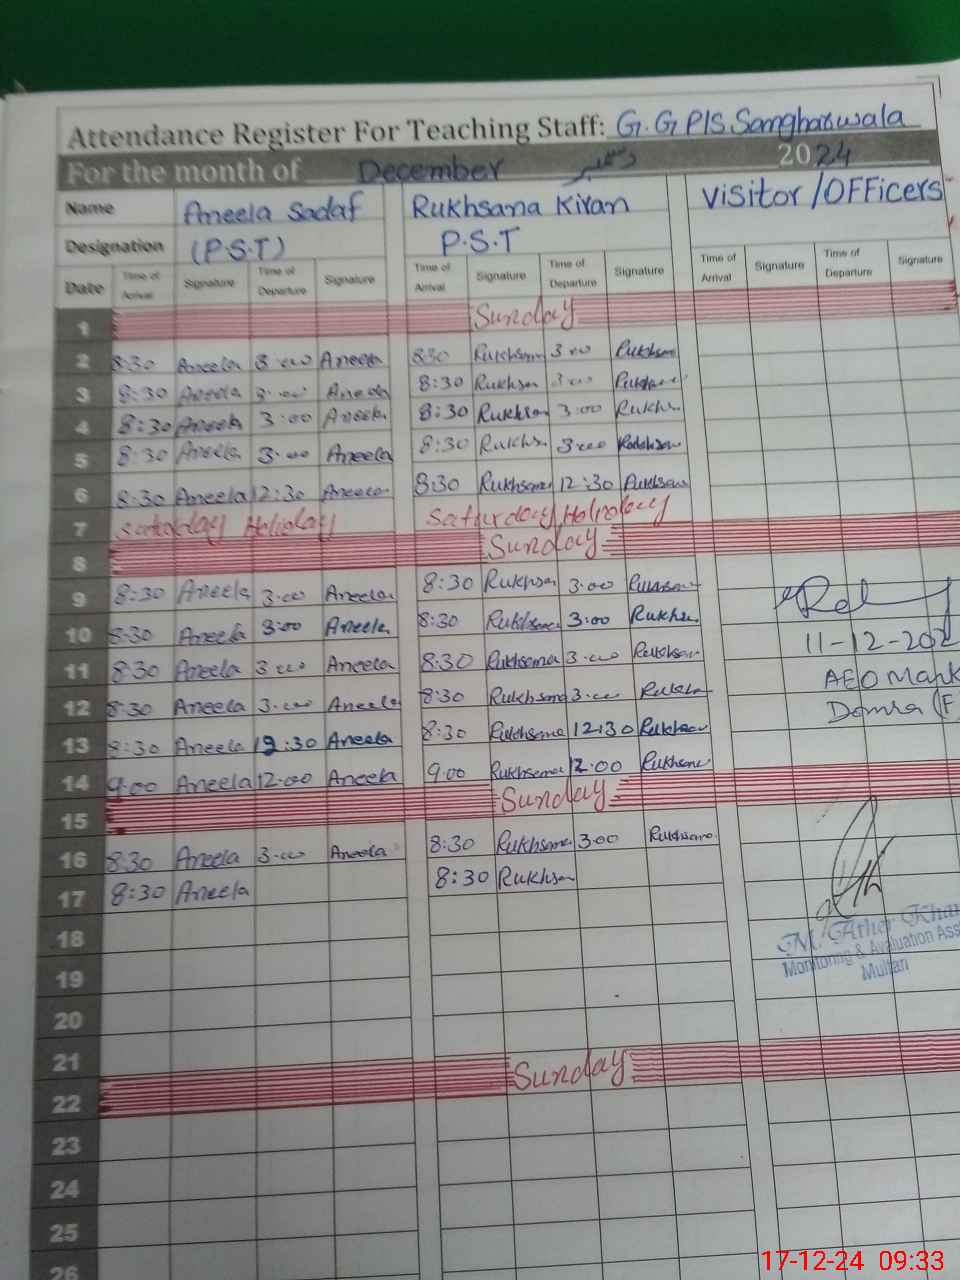 Attendance Register For Teaching Staff: G.G.P/S.Sangharwala
For the month of December دسمبر 2024
Name Aneela Sadaf Rukhsana Kiran Visitor/OFFicers
Designation (P.S.T) P.S.T
Date Time of Arrival Signature Time of Departure Signature Time of Arrival Signature Time of Departure Signature Time of Arrival Signature Time of Departure Signature
1 Sunday
2 8:30 Aneela 3:00 Aneela 830 Rukhsana 3:00 Rukhsan
3 8:30 Aneela 3:00 Aneela 8:30 Rukhsan 3:00
4 8:30 Aneela 3:00 Aneela 8:30 Rukhsa 3:00 Rukhs
5 8:30 Aneela 3:00 Aneela 8:30 Rukhsa 3:00
6 8:30 Aneela 12:30 Aneela 830 Rukhsana 12:30 Rukhsana
7 Saturday Holiday
8 Sunday
9 8:30 Aneela 3:00 Aneela 8:30 Rukhsan 3:00
10 8:30 Aneela 3:00 Aneela 8:30 Rukhsana 3:00 Rukhsa
11-12-202
11 8:30 Aneela 3:00 Aneela 8:30 Rukhsana 3:00 Rukhsana
AEO
12 8:30 Aneela 3:00 Aneela 8:30 Rukhsana 3:00
Domra (F
13 8:30 Aneela 12:30 Aneela 8:30 Rukhsana 12:30 Rukhsana
14 9:00 Aneela 12:00 Aneela 9:00 Rukhsana 12:00 Rukhsana
15 Sunday
16 8:30 Aneela 3:00 Aneela 8:30 Rukhsana 3:00 Rukhsana
17 8:30 Aneela 8:30 Rukhsan
18
M. Ather Khan
Monitoring & Evaluation Ass
Multan
19
20
21
22 Sunday
23
24
25
26
17-12-24 09:33